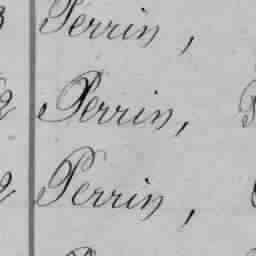 Perrin,
Perrin,
Perrin,